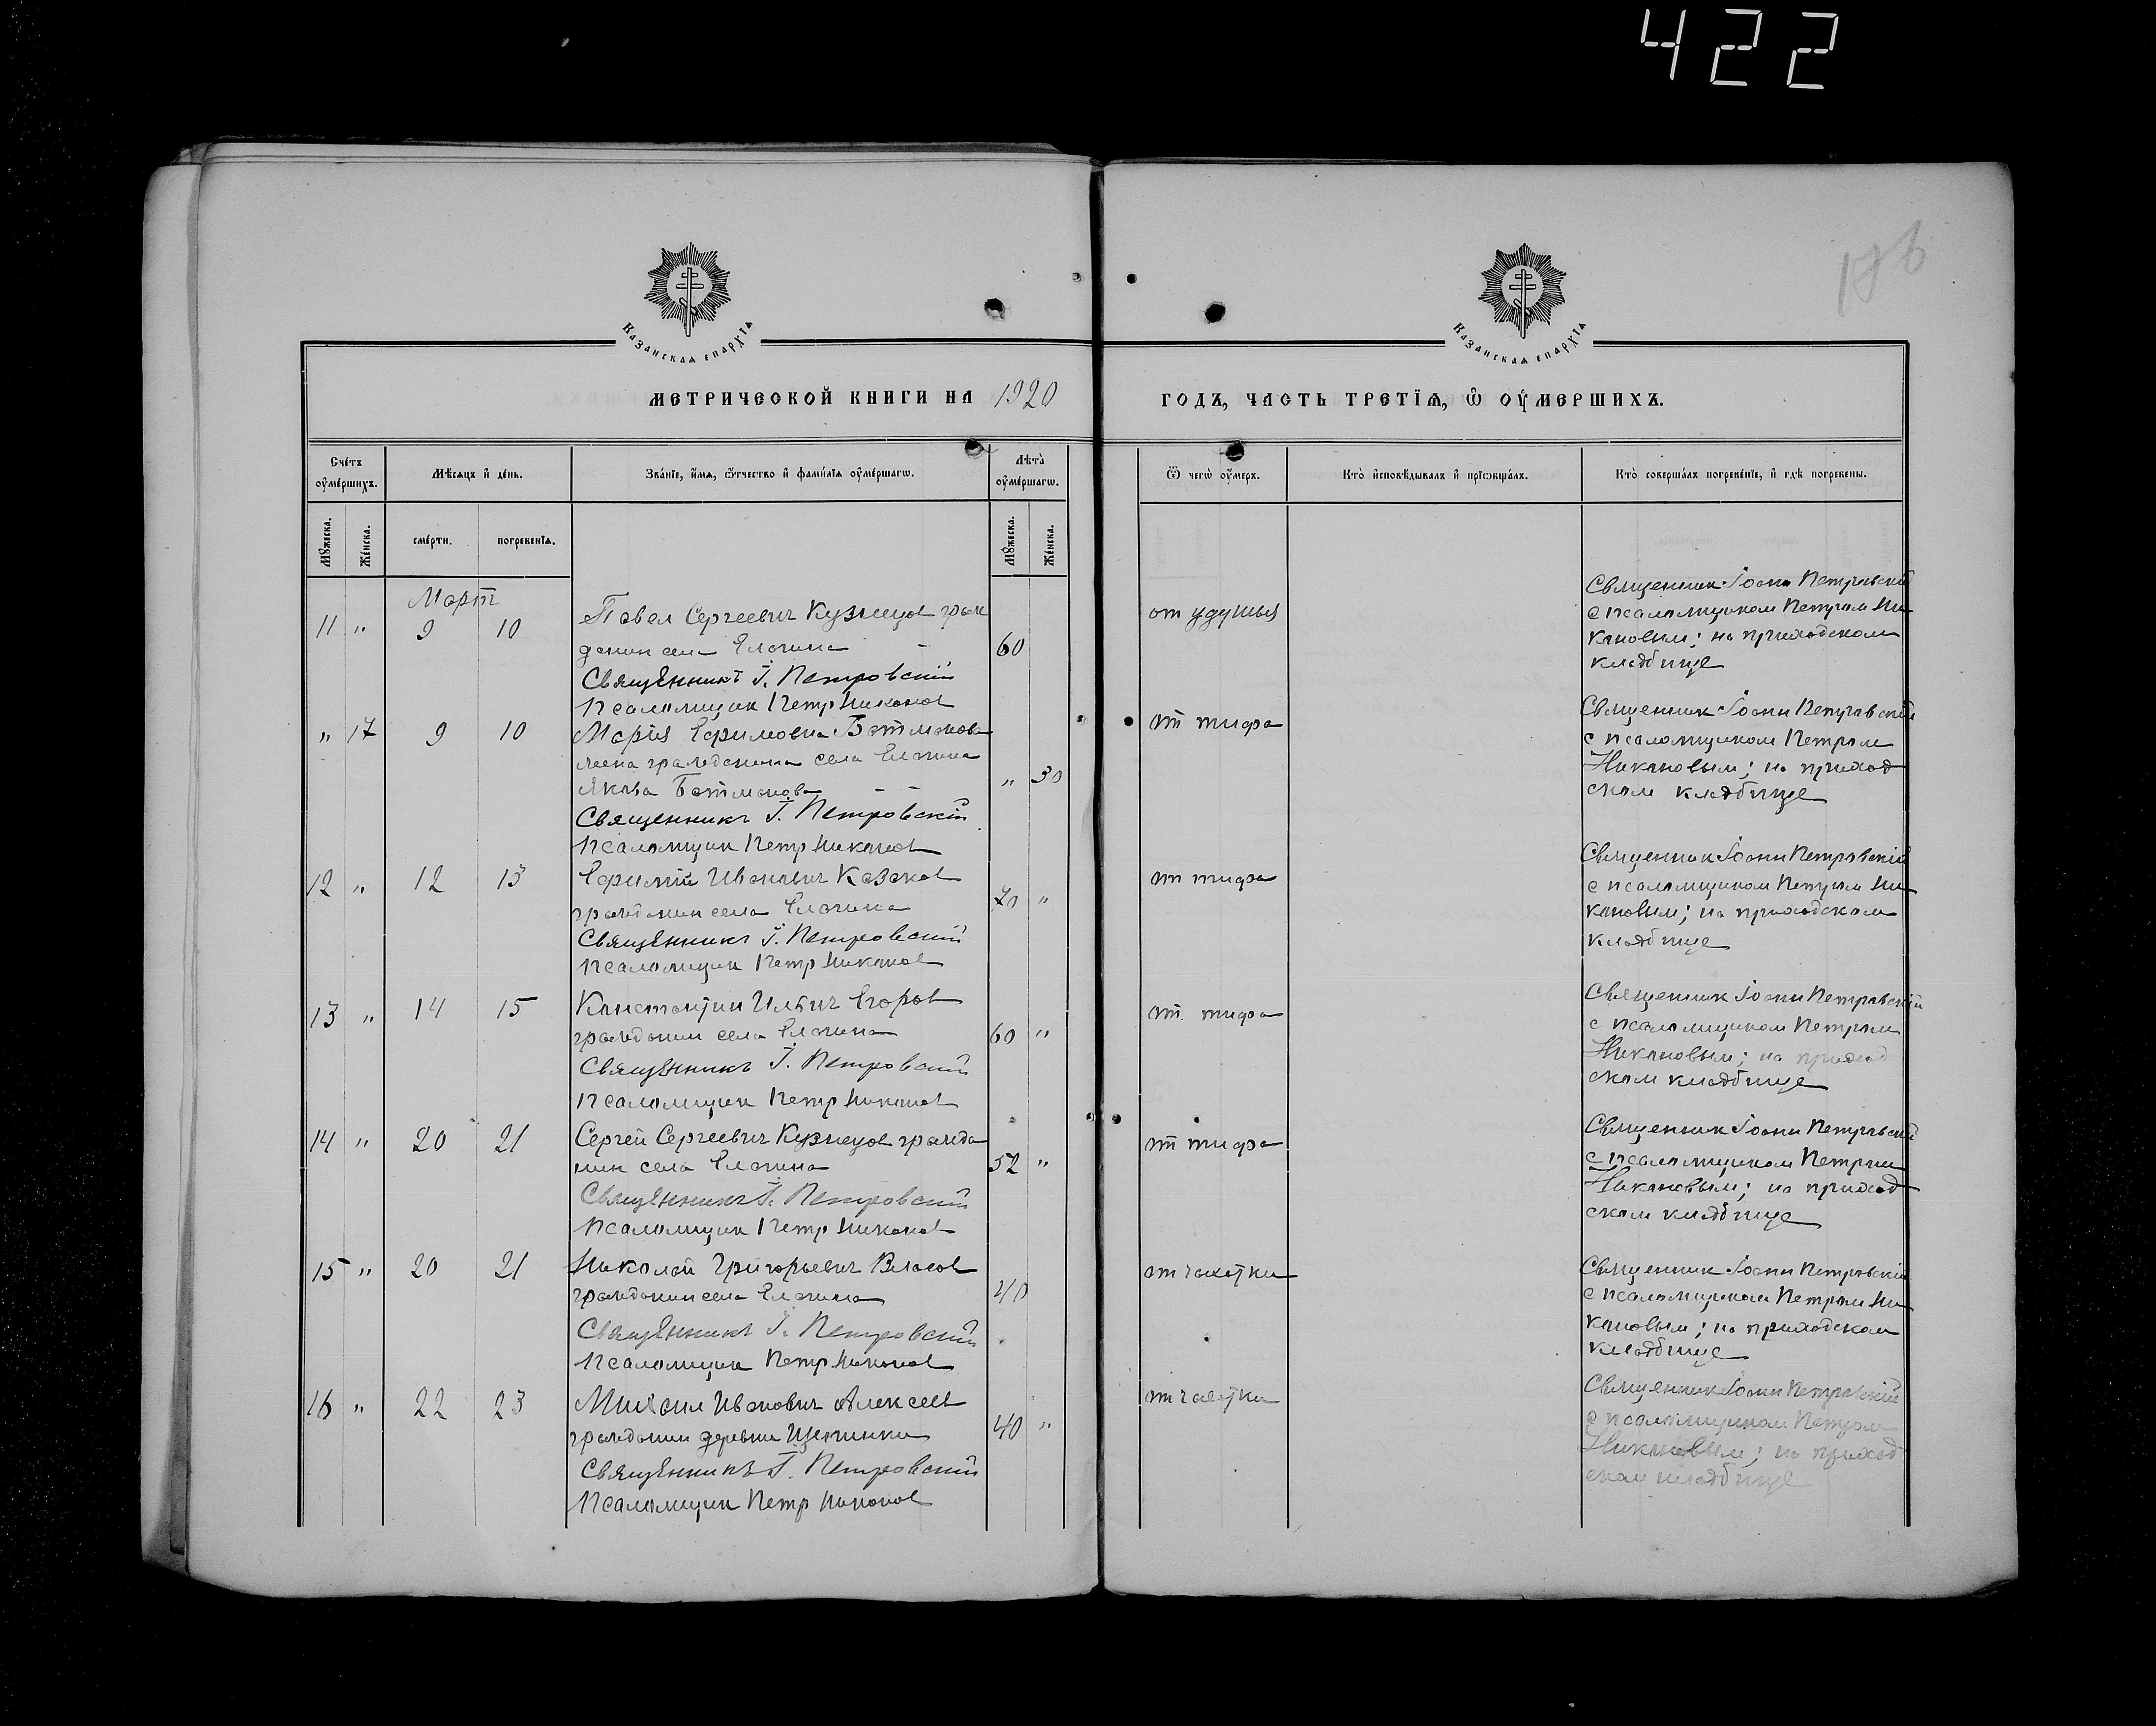 422
176
Казанская епархїѧ
Казанская епархїѧ
МЕТРИЧЕСКОЙ КНИГИ НА 1920 ГОДЪ, ЧАСТЬ ТРЕТЇѦ, Ѿ ОУМЕРШИХЪ.
Счетъ оумершихъ.
Мѣсяцъ и день.
Званїе, имя, ѻтчество и фамилїя оумершагѡ.
Лѣта оумершагѡ.
Ѿ чегѡ оумеръ.
Кто исповѣдывалъ и прїѡбщалъ.
Кто совершалъ погребенїе, и гдѣ погребены.
Мꙋжеска.
Женска.
смерти.
погребенїѧ.
Мꙋжеска.
Женска.
Март
11 " 9 10
Павел Сергеевич Кузнецов граж
данин села Елагина 60
Священникъ І. Петровскій
Псаломщик Петр Никонов
от удушья
Священник Іоанн Петровский
с псаломщиком Петром Ни
коновым; на приходском
кладбище
" 17 9 10
Марія Ефимовна Ботманова
жена гражданина села Елагина
Якова Ботманова " 30
Священникъ І. Петровскій
Псаломщик Петр Никонов
от тифа
Священник Іоанн Петровский
с псаломщиком Петром
Никоновым; на приход
ском кладбище
12 " 12 13
Ефимій Иванович Казаков
гражданин села Елагина 70 "
Священникъ І. Петровский
Псаломщик Петр Никонов
от тифа
Священник Іоанн Петровскій
с псаломщиком Петром Ни
коновым; на приходском
кладбище
13 " 14 15
Константин Ильич Егоров
гражданин села Елагина 60 "
Священникъ І. Петровский
Псаломщик Петр Никонов
от тифа
Священник Іоанн Петровскій
с псаломщиком Петром
Никоновым; на приход
ском кладбище
14 " 20 21
Сергей Сергеевич Кузнецов гражда
нин села Елагина 52 "
Священникъ І. Петровский
Псаломщик Петр Никонов
от тифа
Священник Іоанн Петровский
с псаломщиком Петром
Никоновым; на приход
ском кладбище
15 " 20 21
Николай Григорьевич Власов
гражданин села Елагина 40
Священникъ І. Петровский
Псаломщик Петр Никонов
от чахотки
Священник Іоанн Петровскій
с псаломщиком Петром Ни
коновым; на приходском
кладбище
16 " 22 23
Михаил Иванович Алексеев
гражданин деревни Щепинки 40 "
Священникъ І. Петровский
Псаломщик Петр Никонов
от чахотки
Священник Іоанн Петровскій
с псаломщиком Петром
Никоновым; на приход
ском кладбище